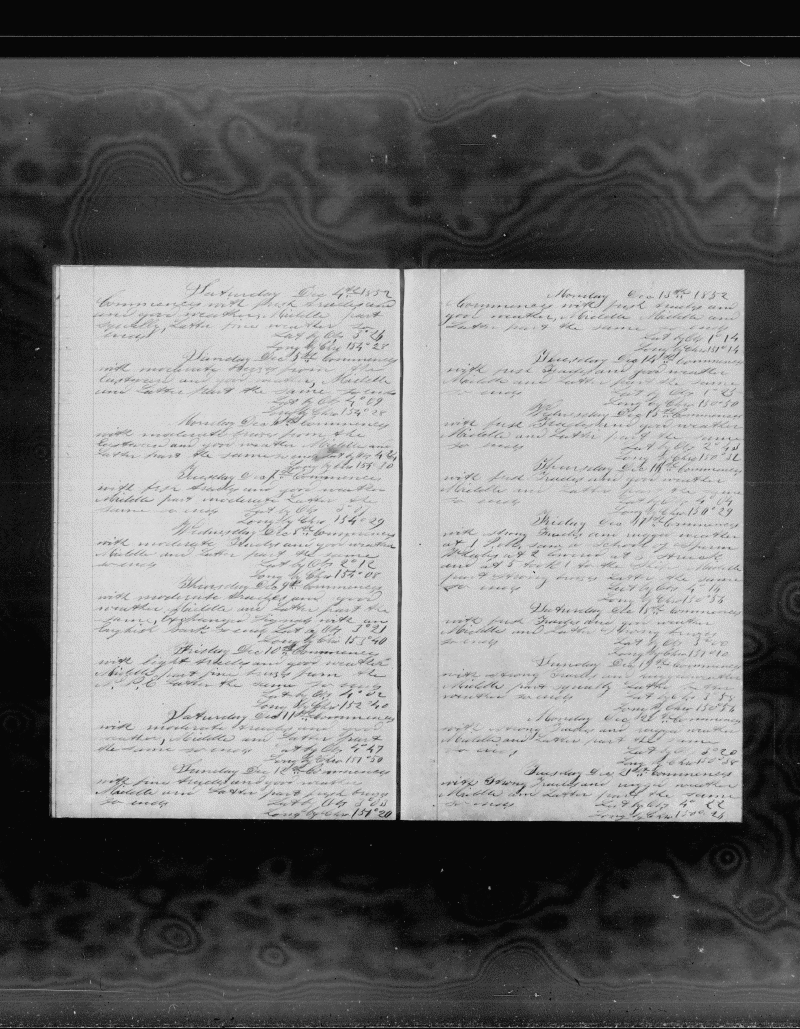 Saturday Dec 4th 1852
Commences with fresh trades and
and good weather, Middle part
squally, Latter fine weather so
ends Lat by Obs 3° 24
Long by Chro 154° 23
Sunday Dec 5th Commences
with moderate breezes from the
Eastward and good weather, Middle
and Latter part the same so ends
Lat by Obs 4° 09
Long by Chro 154° 28
Monday Dec 6th Commences
with moderate breezes from the
Eastward and good weather Middle and
Latter part the same so ends Lat by Obs 4 24
Long by Chro 155° 10
Tuesday Dec 7th Commences
with free trades and good weather
Middle part moderate Latter the
same so ends
Long by Chro 154° 29
Wednesday Dec 8th Commences
with moderate trades and good weather
Middle and Latter part the same
so ends Lat by Obs 2° 12
Long by Chro 154° 08
Thursday Dec 9th Commences
with moderate trades and good
weather Middle and Latter part the
same, Exchanged signals with an
English bark so ends Lat by Obs 3° 21
Long by Chro 153° 40
Friday Dec 10th Commences
with light trades and good weather
Middle part fine breezes from the
Latter the same so ends
Lat by Obs 4° 02
Long by Chro 152° 40
Saturday Dec 11th Commences
with moderate trades and good
weather, Middle and Latter part
the same so ends Lat by Obs 4° 47
Long by Chro 151° 50
Sunday Dec 12th Commences
with fine trades and good weather
Middle and Latter part fresh breezes
so ends Lat by Obs 3° 05
Long by Chro 151° 20
Monday Dec 13th 1852
Commences with fresh trades and
good weather, Middle and
Latter part the same so ends
Lat by Obs 1° 14
Long by Chro 151° 14
Tuesday Dec 14th Commences
with fresh trades and good weather
Middle and Latter part the same
so ends Lat by Obs 1° 23
Long by Chro 150° 50
Wednesday Dec 15th Commences
with fresh trades and good weather
Middle and Latter part the same
so ends Lat by Obs 2° 40
Long by Chro 150° 32
Thursday Dec 16th Commences
with fresh trades and good weather
Middle and Latter part the same
so ends Lat by Obs 4° 04
Long by Chro 150° 29
Friday Dec 17th Commences
with strong trades and rugged weather
at 1 P.M. saw a school of Sperm
Whales at 2 lowered at 3 struck
and at 5 took 1 to the Ship Middle
part strong breezes Latter the same
so ends Lat by Obs 4° 14
Long by Chro 150° 56
Saturday Dec 18th Commences
with fresh trades and good weather
Middle and Latter strong breezes
so ends Lat by Obs
Long by Chro 151° 10
Sunday Dec 19th Commences
with strong trades and rugged weather
Middle part squally Latter better
weather so ends Lat by Obs
Long by Chro 150° 54
Monday Dec 20th Commences
with strong trades and rugged weather
Middle and Latter part the same
so ends Lat by Obs 3° 20
Long by Chro 150° 58
Tuesday Dec 21st Commences
with strong trades and rugged weather
Middle and Latter part the same
so ends Lat by Obs 4° 22
Long by Chro 150° 24